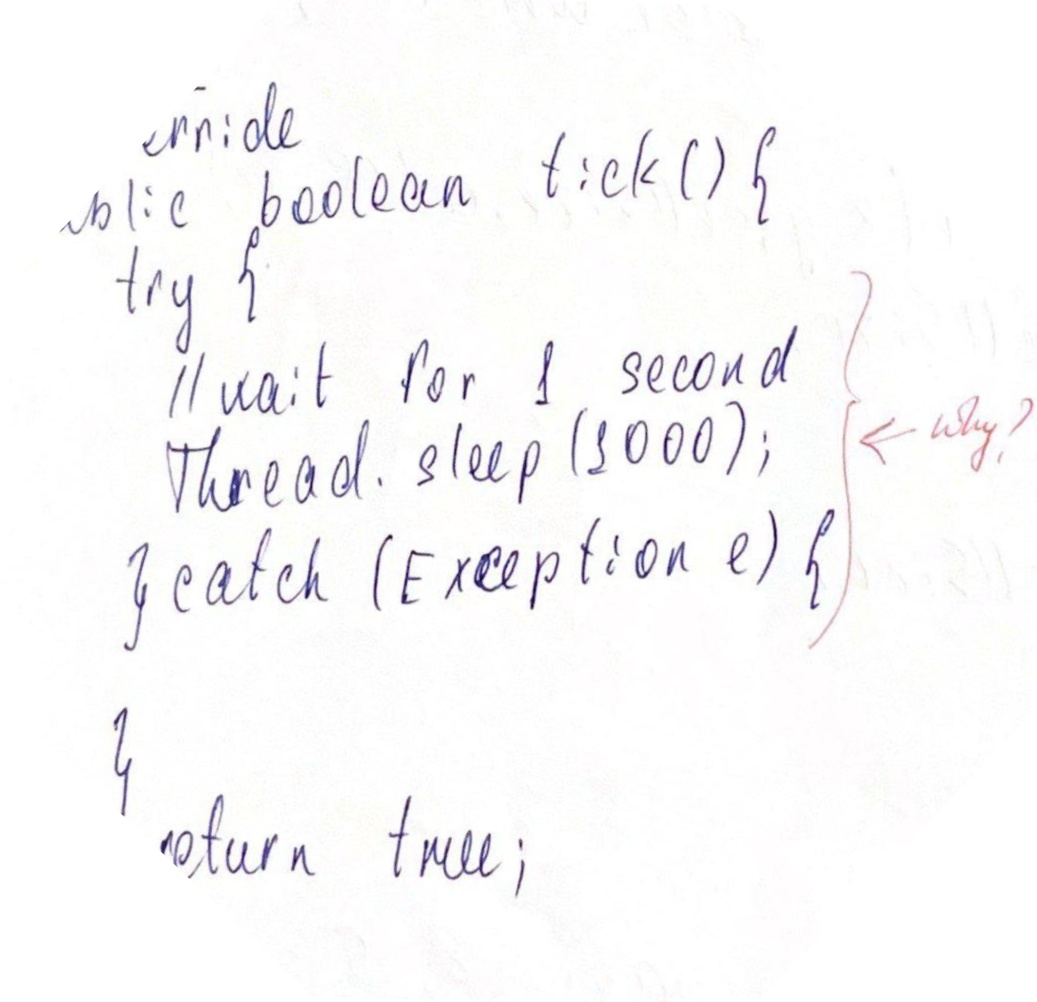 erride
blic boolean tick() {
try {
//wait for 1 second
Thread.sleep(1000);
← why?
} catch (Exception e) {
}
return true;